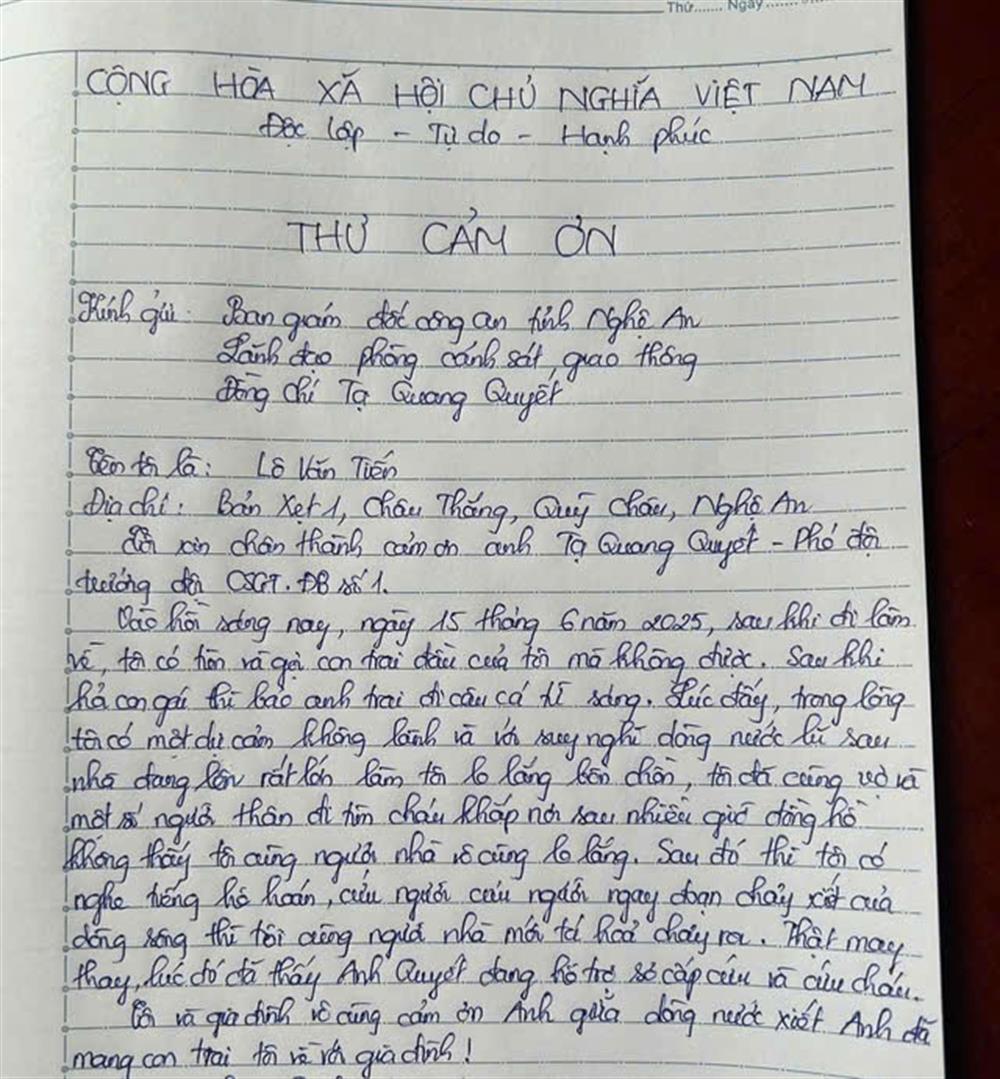 Thứ....... Ngày.......
CỘNG HÒA XÃ HỘI CHỦ NGHĨA VIỆT NAM
Độc lập - Tự do - Hạnh phúc
THƯ CẢM ƠN
Kính gửi: Ban giám đốc công an tỉnh Nghệ An
Lãnh đạo phòng cảnh sát, giao thông
Đồng chí Tạ Quang Quyết
Tên tôi là: Lô Văn Tiến
Địa chỉ: Bản Xẹt 1, Châu Thắng, Quỳ Châu, Nghệ An
Tôi xin chân thành cảm ơn anh Tạ Quang Quyết - Phó đội
trưởng đội CSGT. ĐB số 1.
Vào hồi sáng nay, ngày 15 tháng 6 năm 2025, sau khi đi làm
về, tôi có tìm và gọi con trai đầu của tôi mà không được. Sau khi
hỏi con gái thì bảo anh trai đi câu cá từ sáng. Lúc đấy, trong lòng
tôi có một dự cảm không lành và với suy nghĩ dòng nước lũ sau
nhà đang lên rất lớn làm tôi lo lắng bồn chồn, tôi đã cùng vợ và
một số người thân đi tìm cháu khắp nơi sau nhiều giờ đồng hồ
không thấy tôi cùng người nhà vô cùng lo lắng. Sau đó thì tôi có
nghe tiếng hô hoán, cứu người cứu người ngay đoạn chảy xiết của
dòng sông thì tôi cùng người nhà mới tá hoả chạy ra. Thật may
thay, lúc đó đã thấy Anh Quyết đang hỗ trợ sơ cấp cứu và cứu cháu.
Tôi và gia đình vô cùng cảm ơn Anh giữa dòng nước xiết Anh đã
mang con trai tôi về với gia đình!